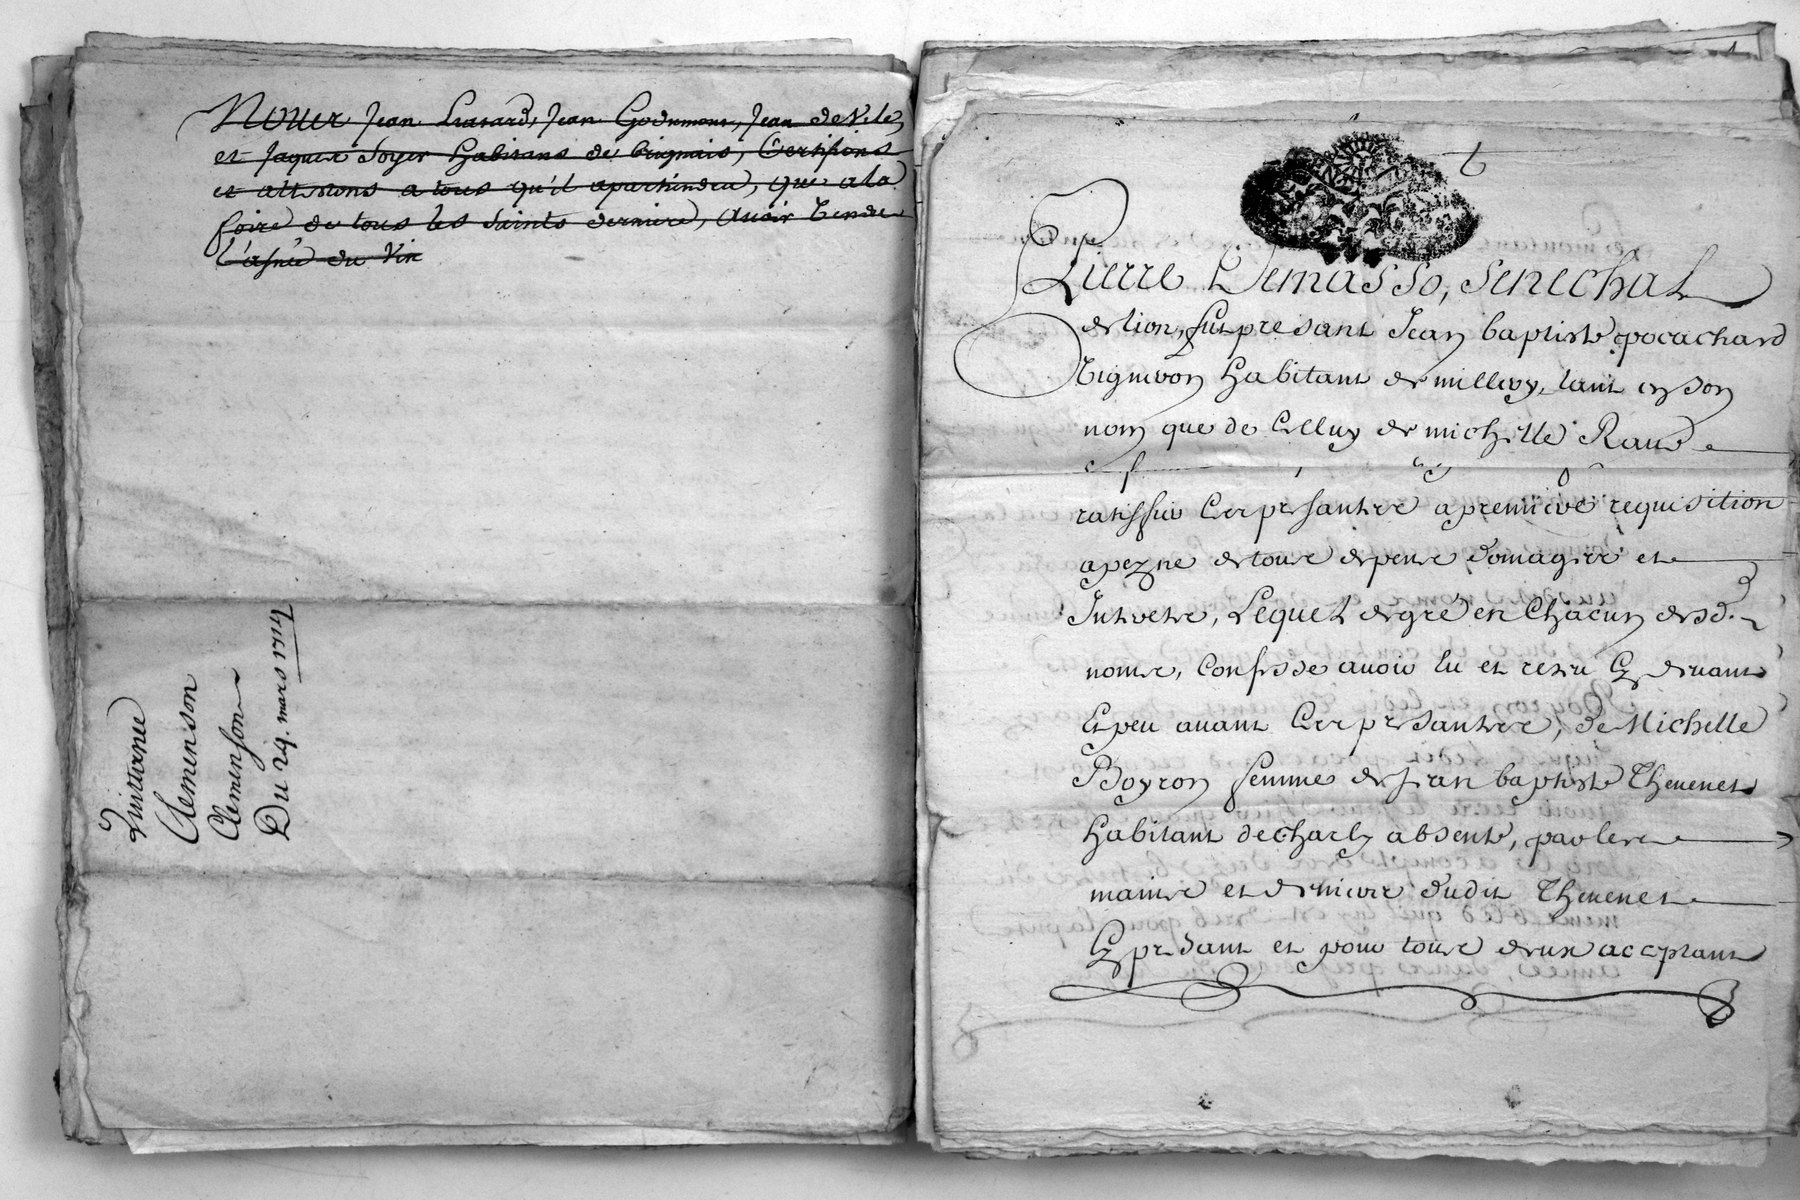 Nous Jean Livrard, Jean Godemons, Jean de Vile,
et Jaques Soyer Habitans de brignais, Certifions
et attestons a tous qu'il apartiendra, que a la
foire de tous les Saints derniere, avoir vendu
l'asnée du Vin
Quittance
Clemenson
Clemenson
Du 29. mars 1714
Pierre Demasso, Senechal
de lion, fut presant Jean baptiste pocachard
Vigneron habitant de millery, tant en son
nom que de Celluy de michelle Rave
ratiffier Ces presantes a premiere requisition
a peyne de tous depens domages et
Interets, Lequel de gré en Chacun desd.
noms, Confesse avoir eu et reseu Cy devant
Et peu avant Ces presantes, de Michelle
Boyron femme de Jean baptiste Thevenet
habitant de Charly absente, par les
mains et deniers dudit Thevenet
Cy presant et pour tous deux acceptant